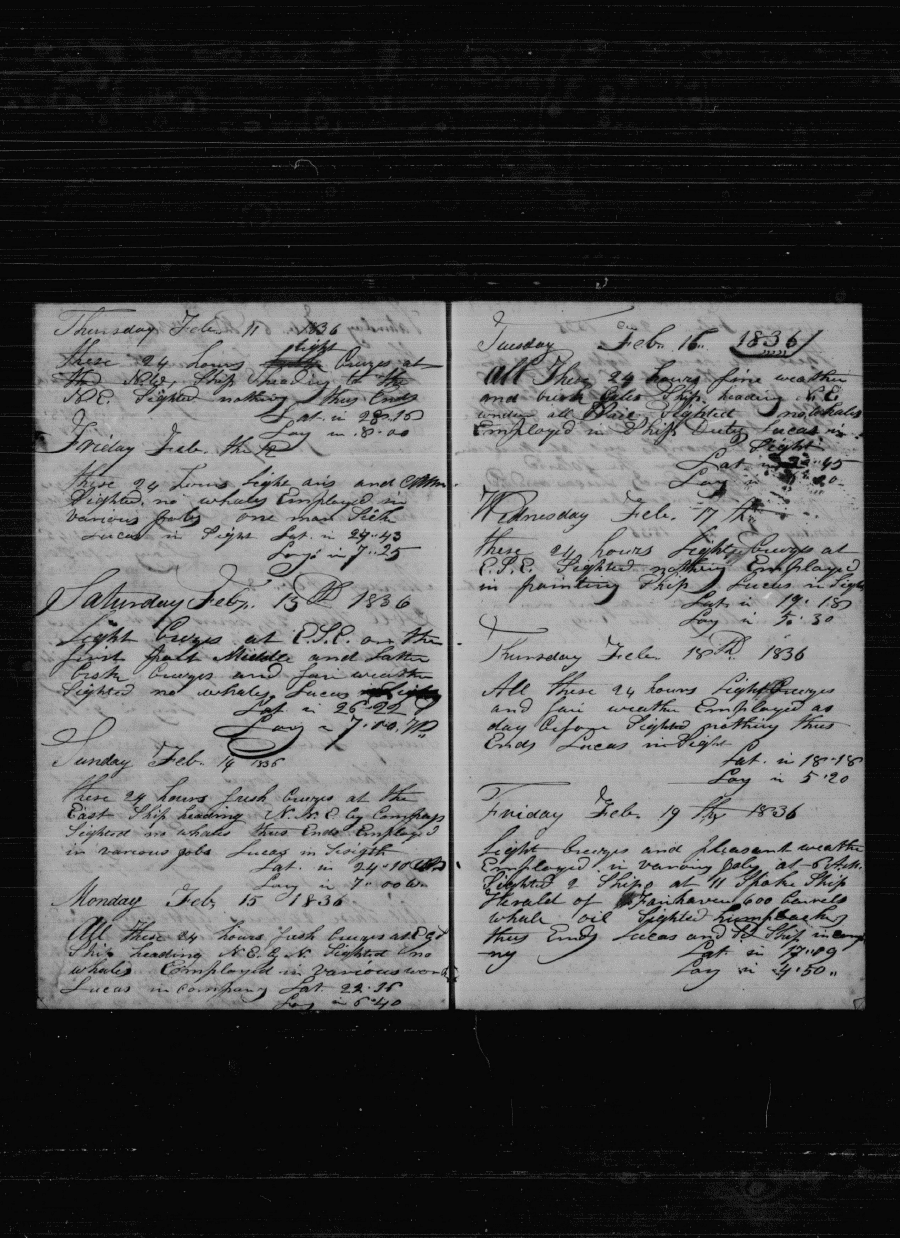 Thursday Feb. 11 1836
light
these 24 hours bregs at
the N.W. Ship heading to the
N.E. Sighted nothing thus Ends
Lat. in 28-16
Lay in 8.00
Friday Feb. the
these 24 hours lighe ars and Calm
Sighted no whales Employed in
various jobs one man Sick
Lucas in Sight Lat. in 27-43
Lay in 7-25
Saturday Feb. 13th 1836
Light bregs at E.S.E. on the
first part Middle and Latter
brsk bregs and fair weather
Sighted no whales Lucas in Sight
Lat in 26-22
Lay in 7.00 W
Sunday Feb. 14 1836
these 24 hours fresh bregs at the
East Ship heading N.N.E. by Compass
Sighted no whales thus Ends Employd
in various jobs Lucas in Sisigth
Lat. in 24-10
Lay in 7-00 W
Monday Feb. 15 1836
All these 24 hours fresh bregs at East
Ship heading N.E. by N. Sighted no
whales Employed in various work
Lucas in company Lat 22.26
Lay in 6.40
Tuesday Feb. 16. 1836
All These 24 hours fine weather
and brisk Gales Ship heading N.E.
under all Sighted no whales
Employed in Ships Duty Lucas in
Sight
Lat in 45
Lay
Wednesday Feb. 17 th
these 24 hours light bregs at
E.S.E. Sighted nothing Employed
in painting Ship Lucas in Sight
Lat. in 19.18
Lay in 5.30
Thursday Feb. 18th 1836
All these 24 hours Light bregs
and fair weather Employed as
day before Sighted nothing thus
Ends Lucas in Sight
Lat. in 18-18
Lay in 5-20
Friday Feb. 19 th 1836
Light bregs and pleasant weather
Employed in varing jobs at 6 A.M.
Sighted 2 Ships at 11 Spoke Ship
Herald of Fairhaven 600 barrels
whale oil Sighted humpbacks
thus Ends Lucas and Ship in compa
ny Lat in 17-09
Lay in 4.50